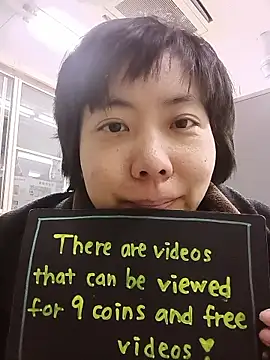 There are videos
that can be viewed
for 9 coins and free
videos ♥